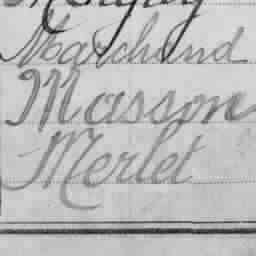 Marchand
Masson
Merlet